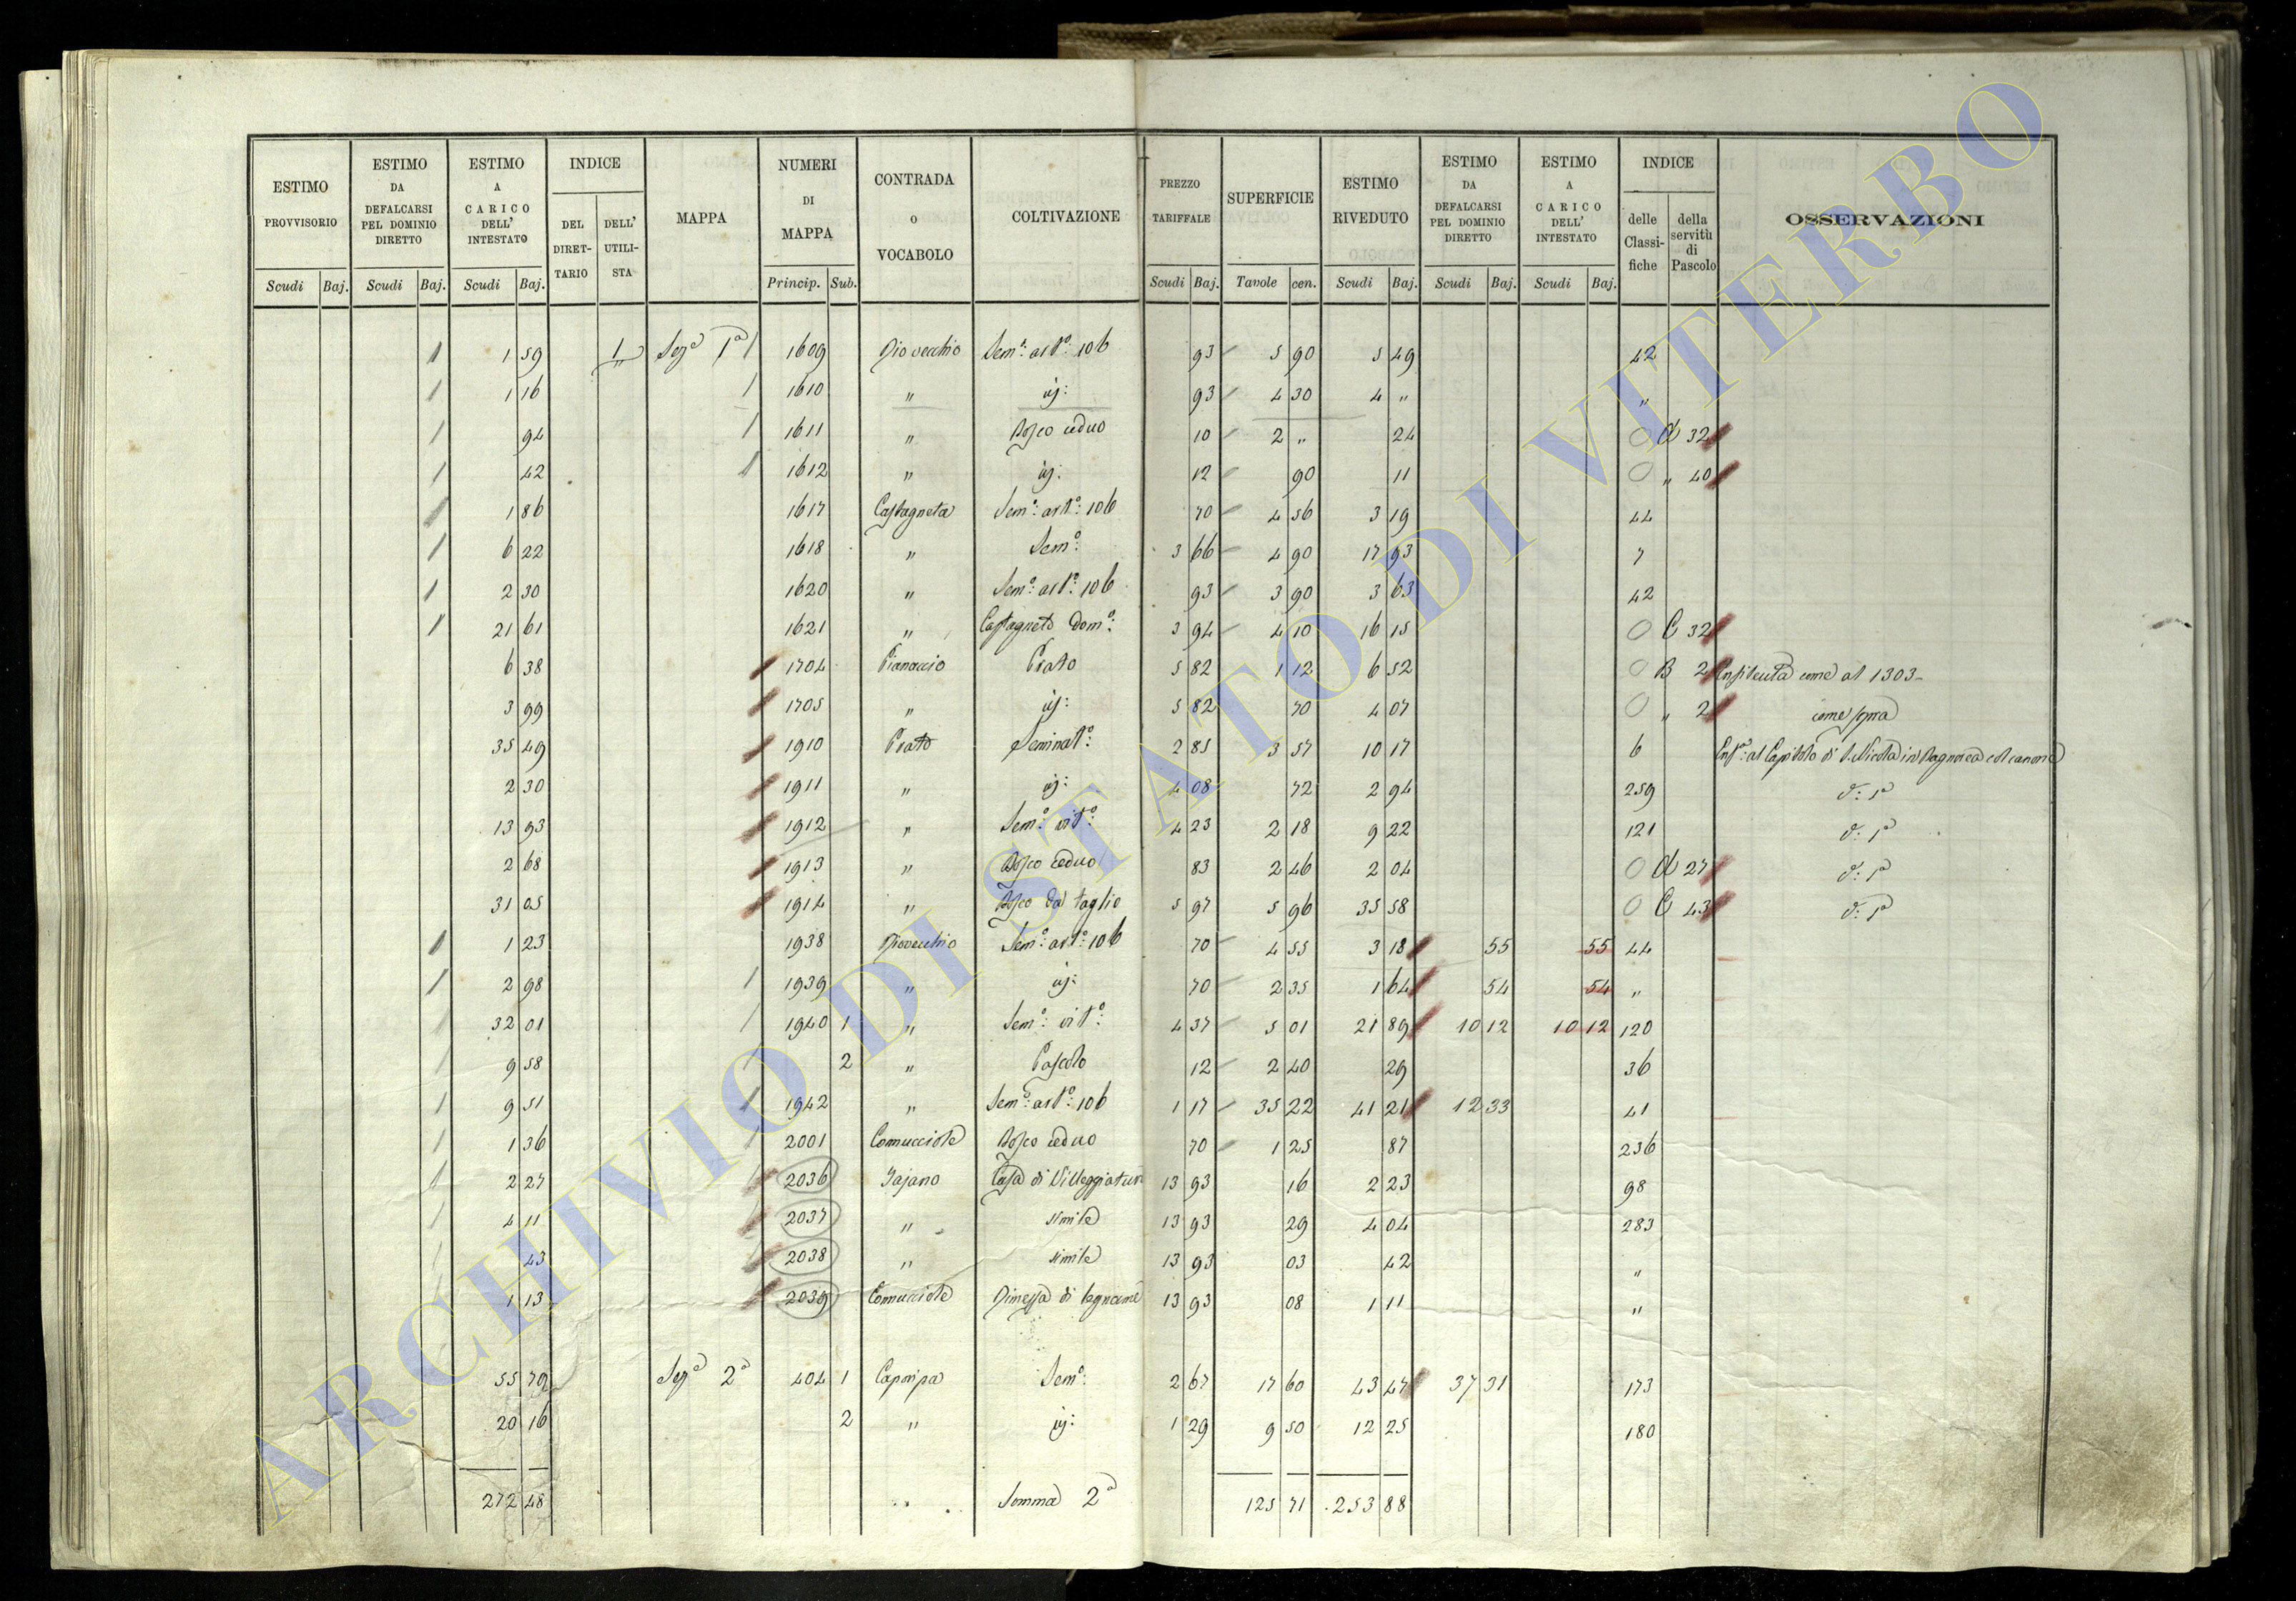 ESTIMO PROVVISORIO | ESTIMO DA DEFALCARSI PEL DOMINIO DIRETTO | ESTIMO A CARICO DELL' INTESTATO | INDICE | MAPPA | NUMERI DI MAPPA | CONTRADA o VOCABOLO | COLTIVAZIONE | PREZZO TARIFFALE | SUPERFICIE | ESTIMO RIVEDUTO | ESTIMO DA DEFALCARSI PEL DOMINIO DIRETTO | ESTIMO A CARICO DELL' INTESTATO | INDICE | OSSERVAZIONI
DEL DIRET-TARIO | DELL' UTILI-STA | delle Classi-fiche | della servitù di Pascolo
Scudi | Baj. | Scudi | Baj. | Scudi | Baj. | Princip. | Sub. | Scudi | Baj. | Tavole | cen. | Scudi | Baj. | Scudi | Baj. | Scudi | Baj.
1 59 | 1 | Sez.a 1a | 1609 | Riovecchio | Sem.o: art.o: 106 | 93 | 5 90 | 5 49 | 42
1 16 | 1610 | " | id: | 93 | 4 30 | 4 " | "
94 | 1611 | " | Bosco ceduo | 10 | 2 " | 24 | 0 | A 32
42 | 1612 | " | id: | 12 | 90 | 11 | 0 | " 40
1 86 | 1617 | Castagneta | Sem.o: art.o: 106 | 70 | 4 56 | 3 19 | 44
6 22 | 1618 | " | Sem.o: | 3 66 | 4 90 | 17 93 | 7
2 30 | 1620 | " | Sem.o: art.o: 106 | 93 | 3 90 | 3 63 | 42
21 61 | 1621 | " | Castagneto dom.o: | 3 94 | 4 10 | 16 15 | 0 | C 32
6 38 | 1704 | Pianaccio | Prato | 5 82 | 1 12 | 6 52 | 0 | B 2 | Enfiteuta come al 1303
3 99 | 1705 | " | id: | 5 82 | 70 | 4 07 | 0 | " 2 | come sopra
35 49 | 1910 | Prato | Seminat.o: | 2 85 | 3 57 | 10 17 | 6 | Enf.a: al Capitolo di S. Nicola in Bagnorea col canone
2 30 | 1911 | " | id: | 4 08 | 72 | 2 94 | 259 | d.: s.a
13 93 | 1912 | " | Sem.o: vit.o: | 4 23 | 2 18 | 9 22 | 121 | d.: s.a
2 68 | 1913 | " | Bosco ceduo | 83 | 2 46 | 2 04 | 0 | A 27 | d.: s.a
31 05 | 1914 | " | Bosco da taglio | 5 97 | 5 96 | 35 58 | 0 | C 43 | d.: s.a
1 23 | 1938 | Riovecchio | Sem.o: art.o: 106 | 70 | 4 55 | 3 18 | 55 | 55 | 44
2 98 | 1939 | " | id: | 70 | 2 35 | 1 64 | 54 | 54 | "
32 01 | 1940 | 1 | " | Sem.o: vit.o: | 4 37 | 5 01 | 21 89 | 10 12 | 10 12 | 120
9 58 | 2 | " | Pascolo | 12 | 2 40 | 29 | 36
9 51 | 1942 | " | Sem.o: art.o: 106 | 1 17 | 35 22 | 41 21 | 12 33 | 41
1 36 | 2001 | Comucciole | Bosco ceduo | 70 | 1 25 | 87 | 236
2 27 | 2036 | Jajano | Casa di Villeggiatura | 13 93 | 16 | 2 23 | 98
4 11 | 2037 | " | simile | 13 93 | 29 | 4 04 | 283
43 | 2038 | " | simile | 13 93 | 03 | 42 | "
1 13 | 2039 | Comucciole | Rimessa di legname | 13 93 | 08 | 1 11 | "
55 79 | Sez.a 2a | 404 | 1 | Caporipa | Sem.o: | 2 67 | 17 60 | 43 47 | 37 31 | 173
20 16 | 2 | " | id: | 1 29 | 9 50 | 12 25 | 180
272 48 | Somma 2a | 125 71 | 253 88
ARCHIVIO DI STATO DI VITERBO